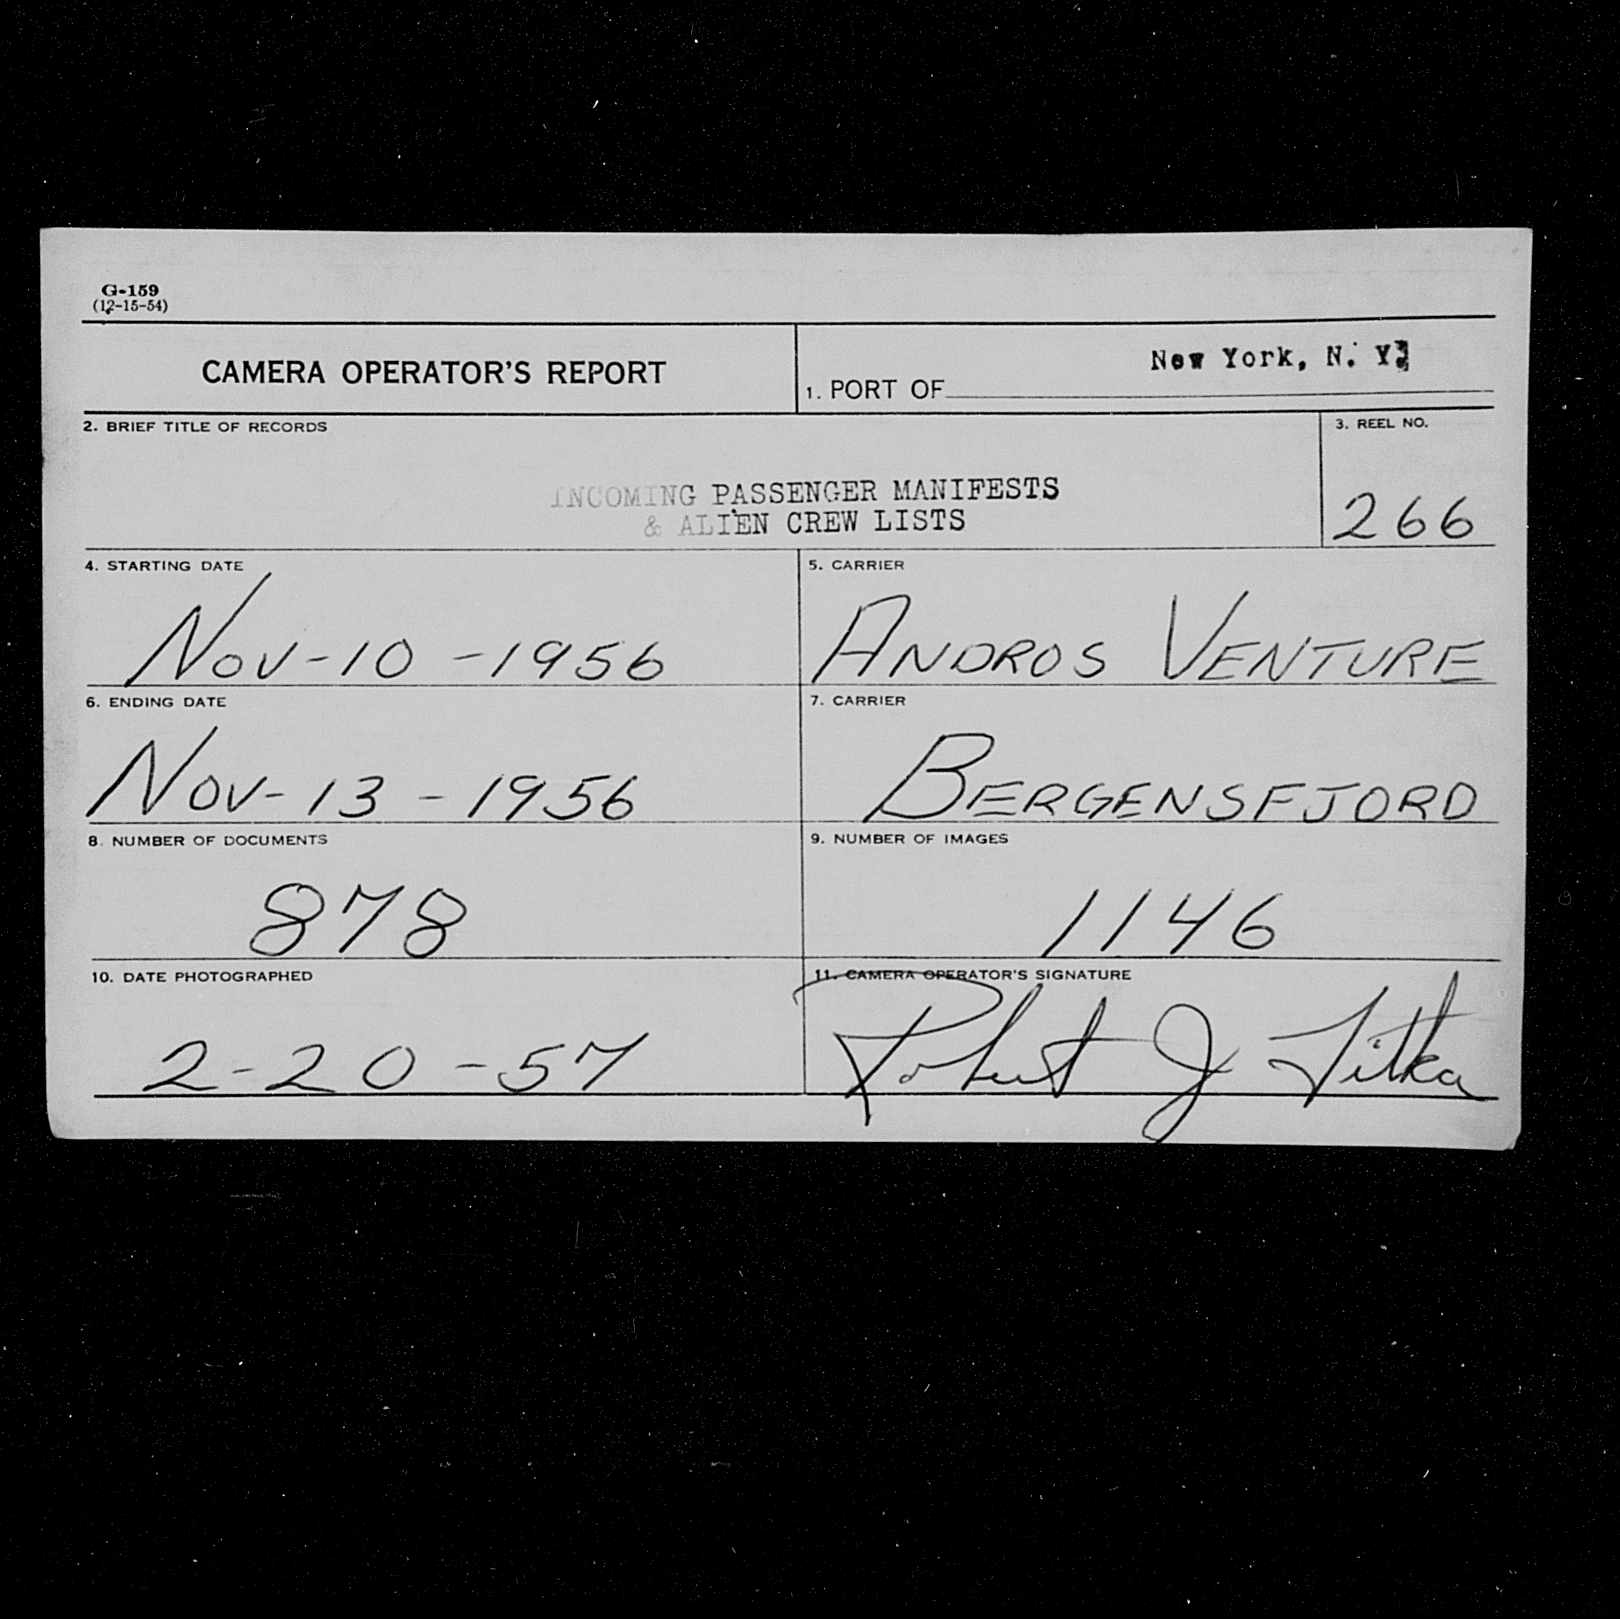 G-159
(12-15-54)
CAMERA OPERATOR'S REPORT
1. PORT OF New York, N. Y.
2. BRIEF TITLE OF RECORDS
INCOMING PASSENGER MANIFESTS
& ALIEN CREW LISTS
3. REEL NO.
266
4. STARTING DATE
Nov-10-1956
5. CARRIER
ANDROS VENTURE
6. ENDING DATE
Nov-13-1956
7. CARRIER
BERGENSFJORD
8. NUMBER OF DOCUMENTS
878
9. NUMBER OF IMAGES
1146
10. DATE PHOTOGRAPHED
2-20-57
11. CAMERA OPERATOR'S SIGNATURE
Robert J